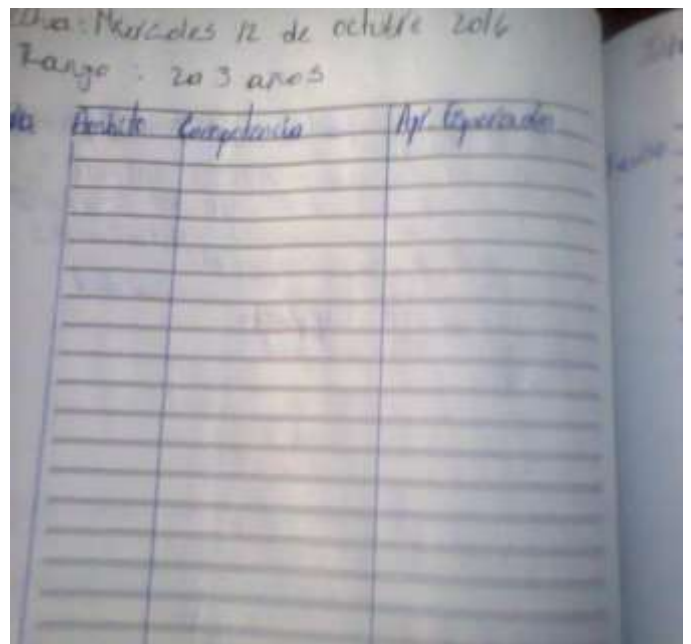 Dia: Miercoles 12 de octubre 2016
Rango : 2a 3 años
Ambito Competencia Apr. Esperados